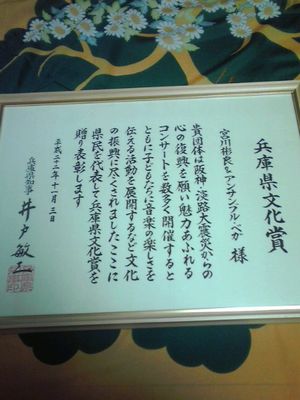 兵庫県文化賞
宮川彬良&アンサンブル・ベガ 様
貴団体は阪神・淡路大震災からの
心の復興を願い魅力あふれる
コンサートを数多く開催すると
ともに子どもたちに音楽の楽しさを
伝える活動を展開するなど文化
の振興に尽くされましたここに
県民を代表して兵庫県文化賞を
贈り表彰します
平成二十二年十一月三日
兵庫県知事 井戸敏三